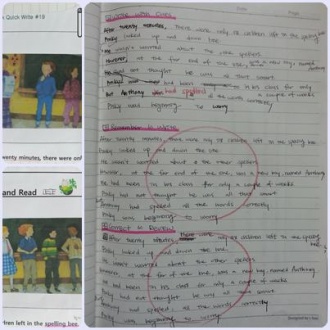 Quick Write #18
twenty minutes, there were onl
and Read
dren left in the spelling bee.
Date
Page
Write with Cues
After twenty minutes, there were only six children left in the spelling bee
Pinky looked up and down the line.
He wasn't worried about the other spellers
However, at the far end of the line, was a new boy, named Anthony
in his class for only a couple of weeks
But Anthony had spelled
the words correctly
Pinky was beginning to worry
Remember to Write
After twenty minutes, there were only six children left in the spelling bee
Pinky looked up and down the line
He wasn't worried about the other spellers
However, at the far end of the line, was a new boy named Anthony
He had been in his class for only a couple of weeks
Pinky had not thought he was all that smart
Anthony had spelled all the words correctly
Pinky was beginning to worry
After twenty minutes were only six children left in the spelling bee
Pinky looked up and down the line,
He wasn't worried about the other spellers
However, at the far end of the line, was a new boy, named Anthony
He had been in his class for only a couple of weeks
Pinky had not thought he was all that smart
Anthony had spelled all the words correctly
Pinky was beginning to worry